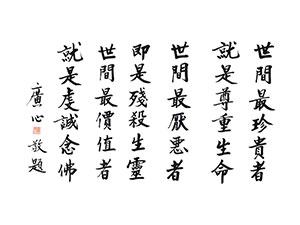 世間最珍貴者
就是尊重生命
世間最厭惡者
即是殘殺生靈
世間最價值者
就是虔誠念佛
廣心敬題